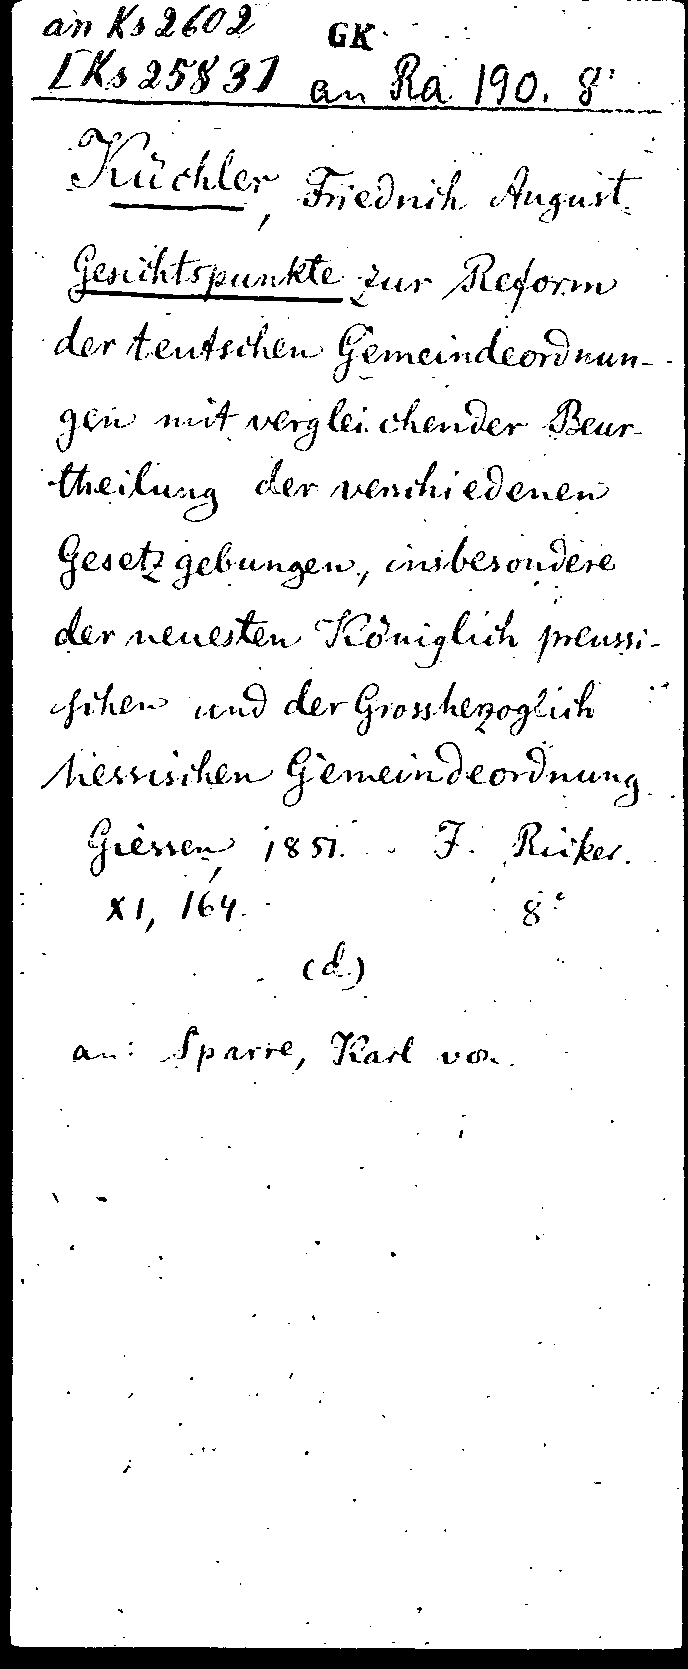 an Ks 2602 GK
[Ks 2583] an Ra 190. 8°
Küchler, Friedrich August.
Gesichtspunkte zur Reform
der teutschen Gemeindeordnun-
gen mit vergleichender Beur-
theilung der verschiedenen
Gesetzgebungen, insbesondere
der neuesten Königlich preussi-
schen und der Grossherzoglich
hessischen Gemeindeordnung
Giessen, 1851. J. Ricker.
XI, 164. 8°
(d)
an: Sparre, Karl von.